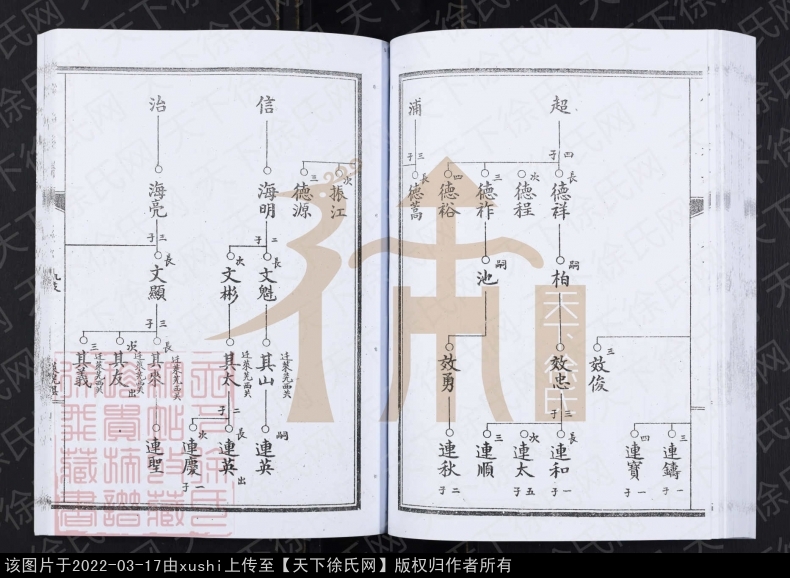 超
四子
長 德祥
次 德程
三 德祚
四 德裕
嗣 柏
嗣 池
效忠
效勇
三 效俊
三子
長 連和 一子
次 連太 五子
三 連順
連秋 二子
三 連鑄 一子
四 連寶 一子
浦
三子
長 德蒿
次 振江
三 德源
信
海明
二子
長 文魁
次 文彬
其山 迁萊芜西关
其太 迁萊芜西关
二子
嗣 連英
長 連英 出
次 連慶 一子
治
海亮
三子
長 文顯
三子
長 其來 迁萊芜西关
次 其友 迁萊芜西关 出
三 其義 迁萊芜西关
連聖
天下徐氏
天下徐氏网
该图片于2022-03-17由xushi上传至【天下徐氏网】版权归作者所有